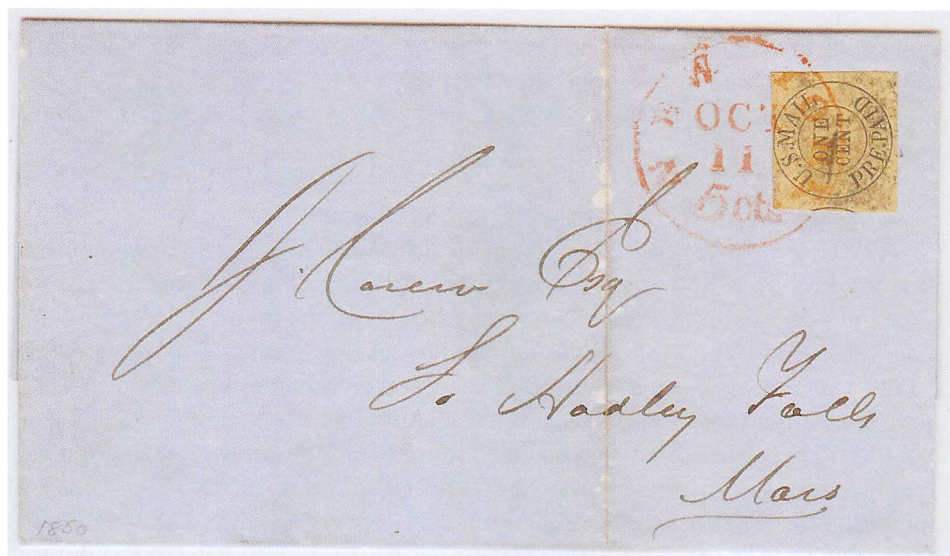 OCT
11
5 cts
U.S. MAIL
ONE
CENT
PRE-PAID
J. Carew Esq
So Hadley Falls
Mass
1850